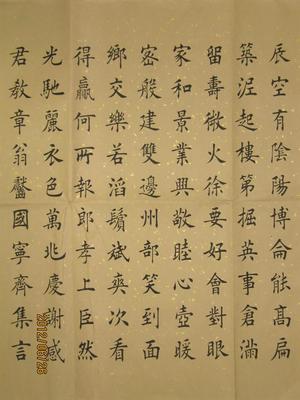 辰空有陰陽博侖能高扁
築浧起樓第掘英事倉滿
留壽微火徐要好會對眼
家和景業興敬睦心壺暖
密般建雙邊州部笑到面
鄉交樂若滔鬚斌奭次看
得贏何所報郎孝上臣然
光馳麗衣色萬兆慶謝感
君教章翁馨國寧齊集言
2012/08/23